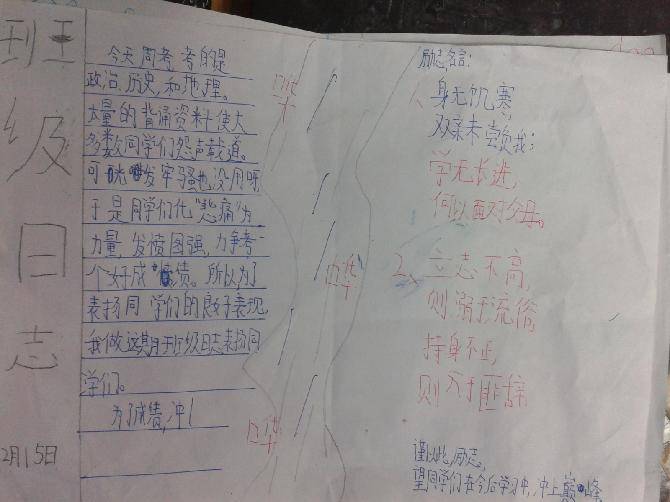 班王
级
日
志
2月15日
今天周考,考的是
政治、历史、和地理。
大量的背诵资料使大
多数同学们怨声载道。
可光发牢骚也没用呀
于是同学们化“悲痛”为
力量,发愤图强,力争考一
个好成绩。所以为了
表扬同学们的良好表现,
我做这期班级日志表扬同
学们。
为了成绩,冲!
哗
哗
哗
励志名言:
身无饥寒
双亲未尝负我;
学无长进,
何以面对父母。
2、立志不高,
则溺于流俗,
持身不正,
则入于匪辟
谨以此,励志,
望同学们在今后学习中,冲上巅峰